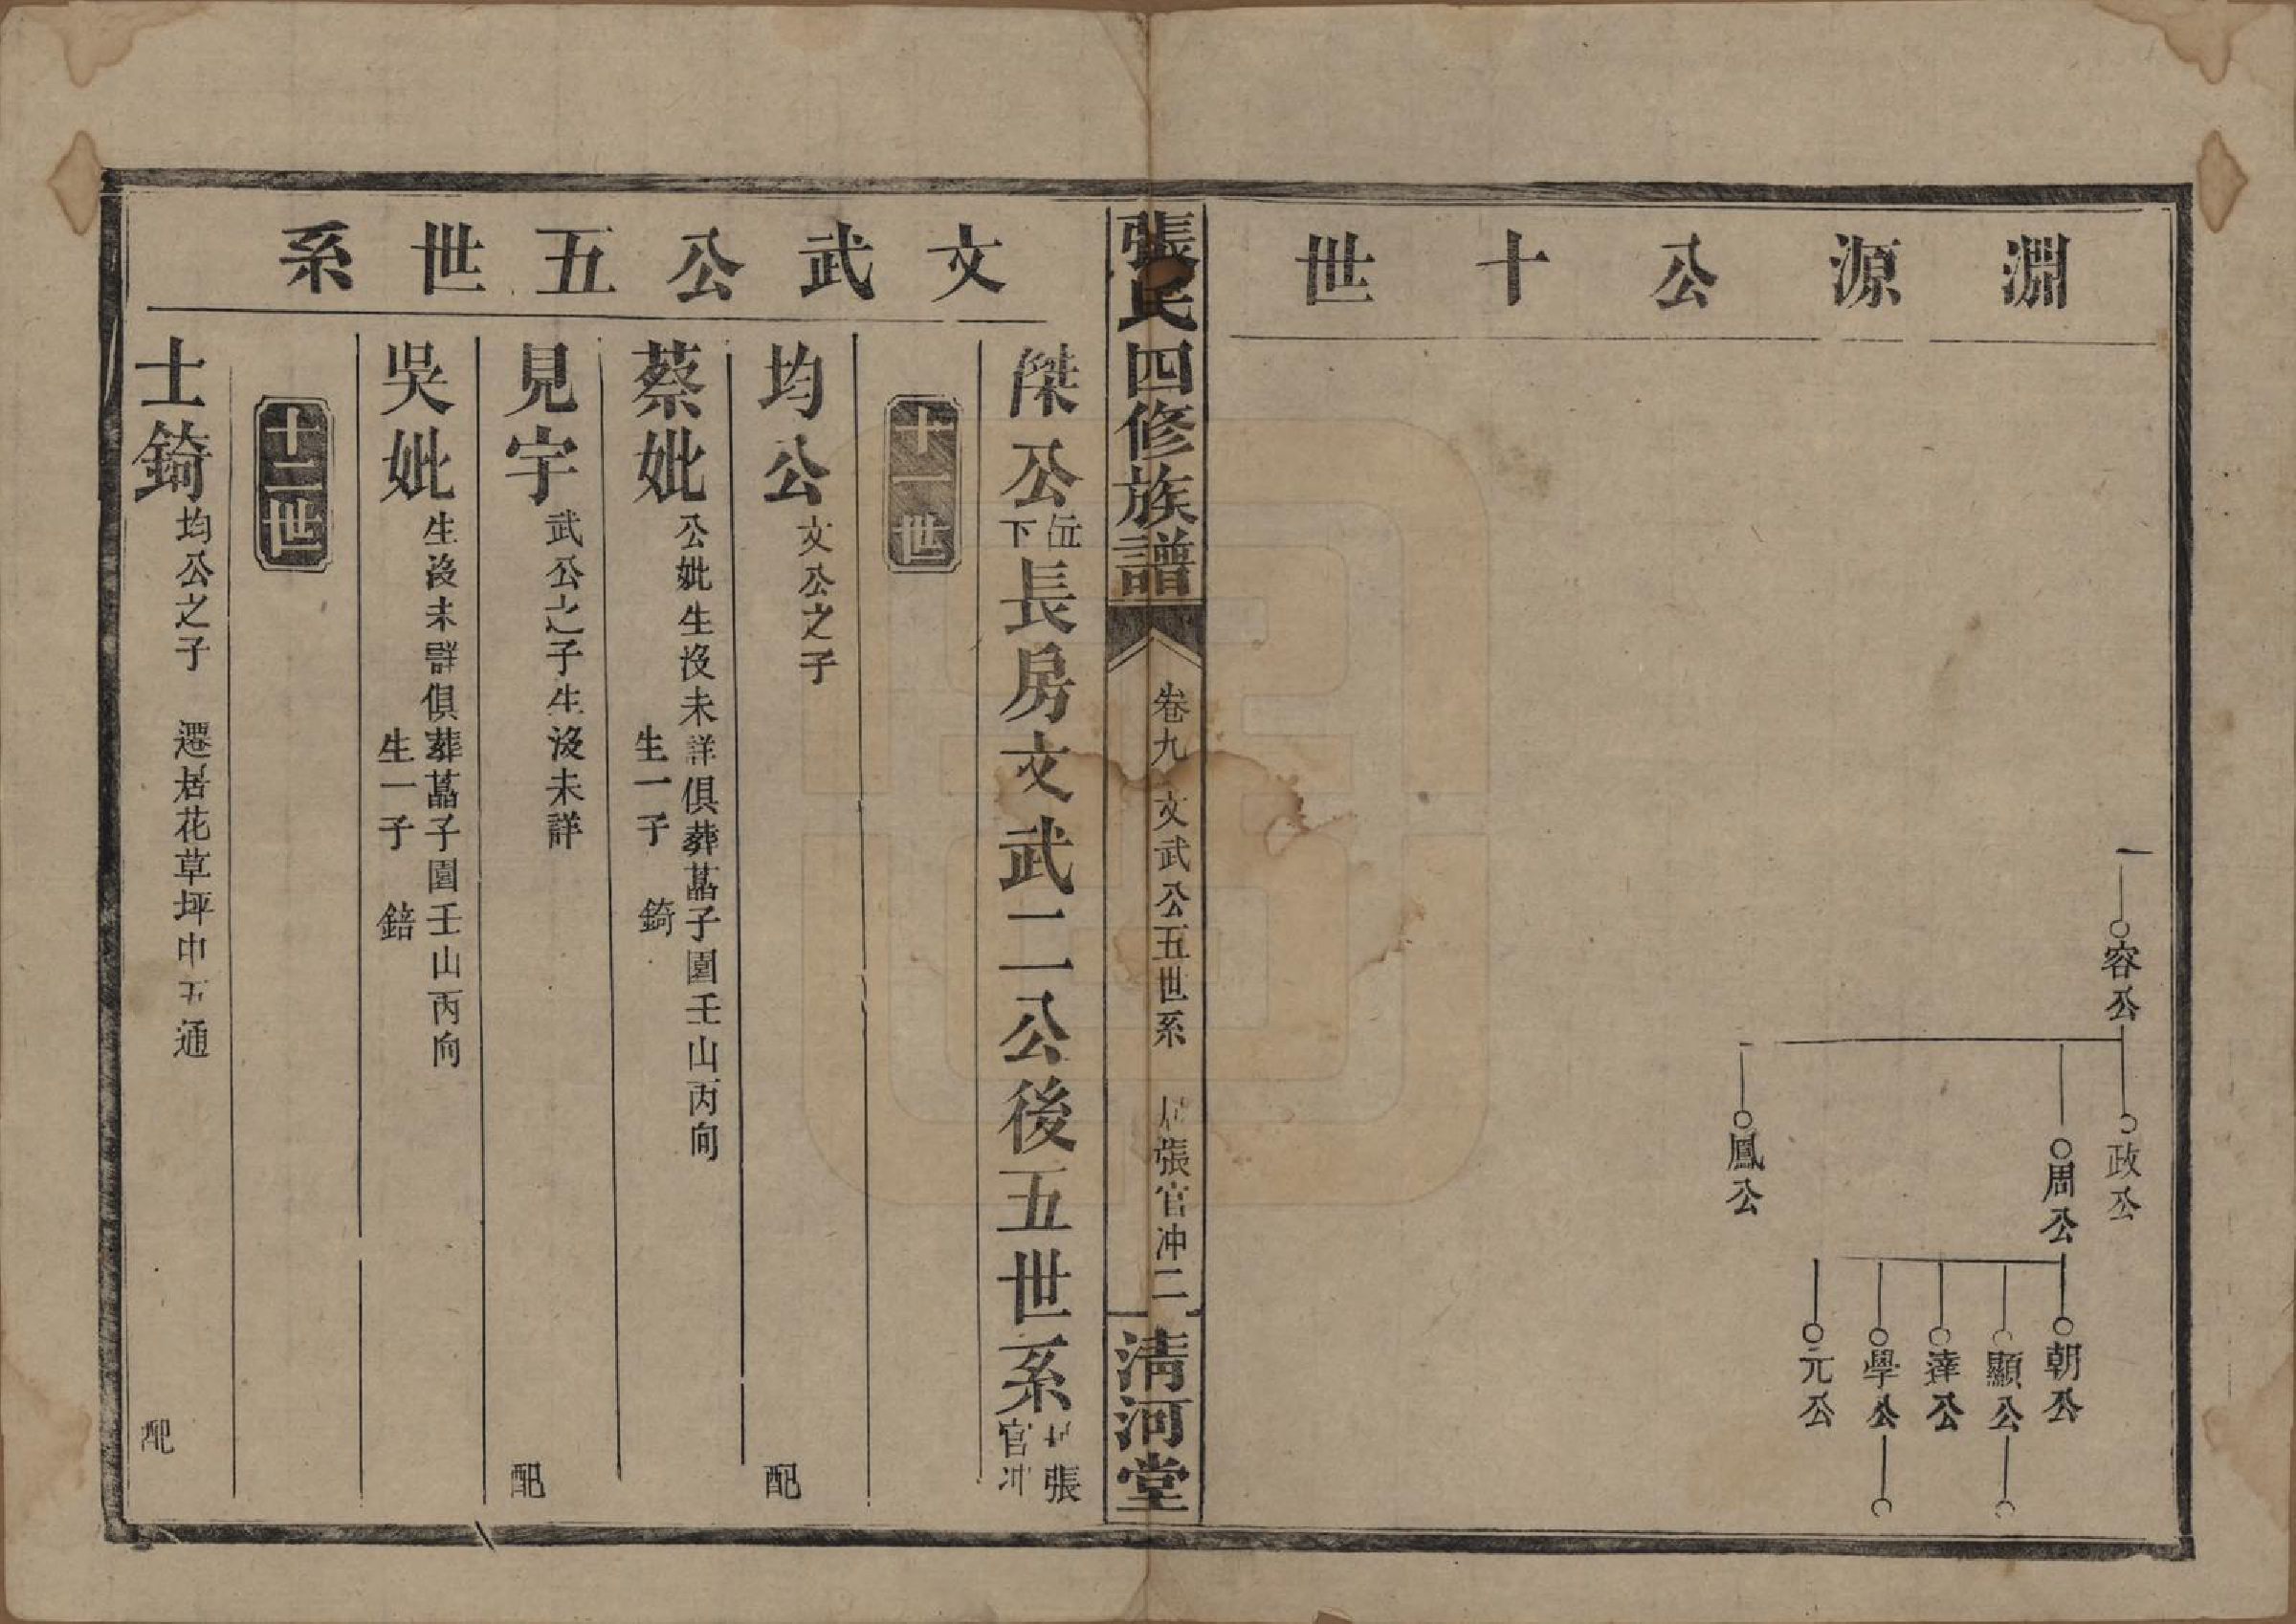 淵源公十世
容公
政公
周公
鳳公
朝公
顯公
達公
學公
元公
張氏四修族譜
卷九 文武公五世系 居張官冲 二
清河堂
文武公五世系
傑公位下長房文武二公後五世系居張官冲
十一世
均公 文公之子 配
蔡妣 公妣生沒未詳俱葬萵子園壬山丙向
生一子 錡
見宇 武公之子生沒未詳 配
吳妣 生沒未詳俱葬萵子園壬山丙向
生一子 錇
十二世
士錡 均公之子 遷居花草坪巾 通 配